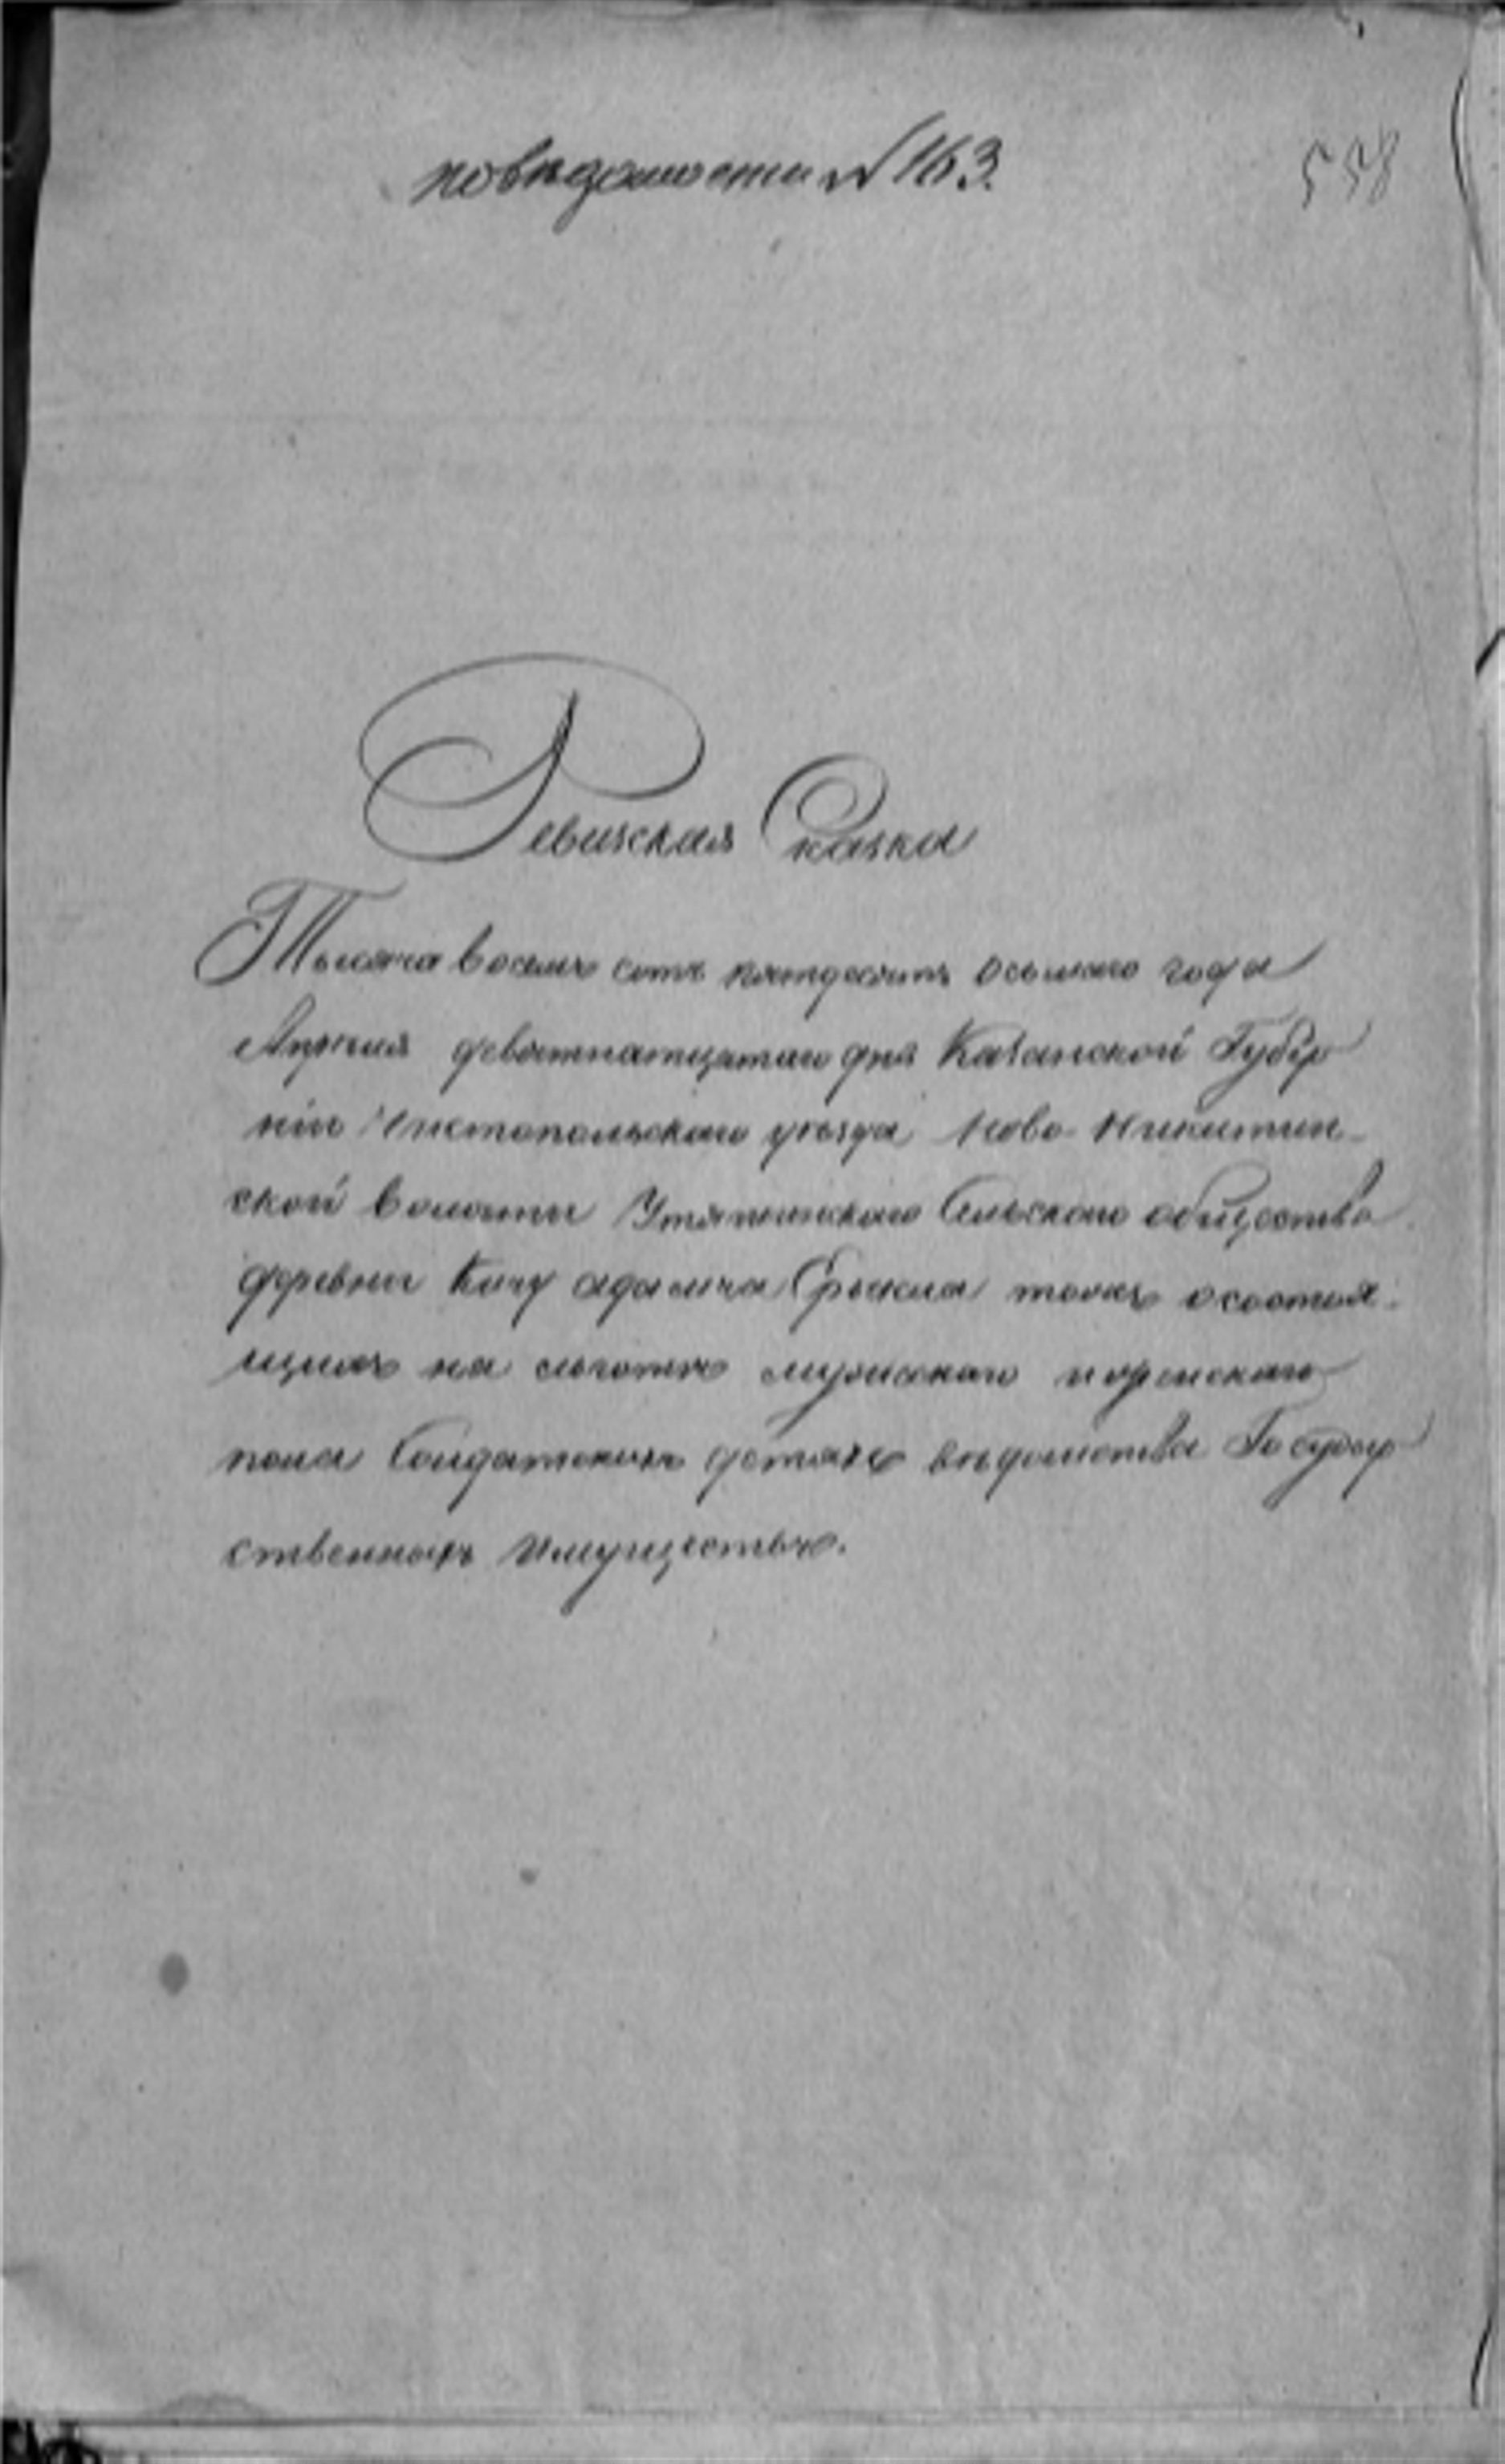 по вѣдомости № 163.
558
Ревизская Сказка
Тысяча восемь сотъ пятдесятъ осьмаго года
Апрѣля девятнатцатаго дня Казанской Губер
ніи Чистопольскаго уѣзда Ново-Никитин-
ской волости Утяшкинскаго Сельскаго общества
деревни Кичу Адамча Ерыкла тожъ о состоя-
щихъ на льготѣ мужескаго и женскаго
пола Солдатскихъ дѣтяхъ вѣдомства Государ
ственныхъ Имуществъ.